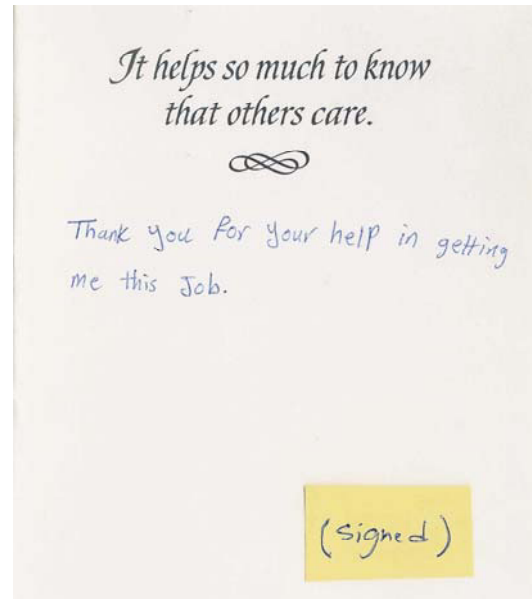 It helps so much to know
that others care.
Thank you for your help in getting
me this Job.
(signed)